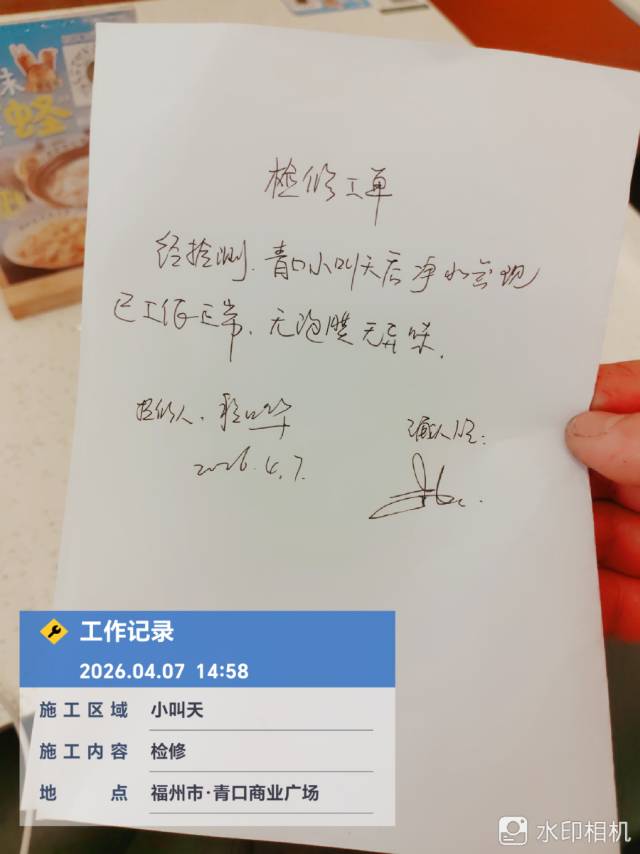 蜂
检修工单
经检测.青口小叫天后净水器现
已工作正常,无泡膜无异味.
检修人.
2026.4.7.
确认人:
工作记录
2026.04.07 14:58
施工区域 小叫天
施工内容 检修
地点 福州市·青口商业广场
水印相机